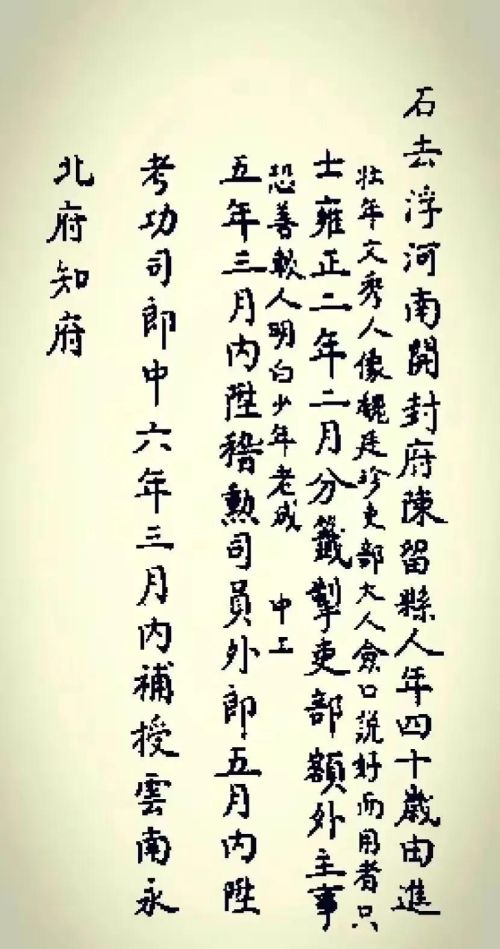 石去浮河南開封府陳留縣人年四十歲由進
壮年文秀人像魏廷珍吏部大人僉口説好而用者只
士雍正二年二月分籤掣吏部額外主事
恐善軟人明白少年老成 中工
五年三月内陞稽勲司員外郎五月内陞
考功司郎中六年三月内補授雲南永
北府知府